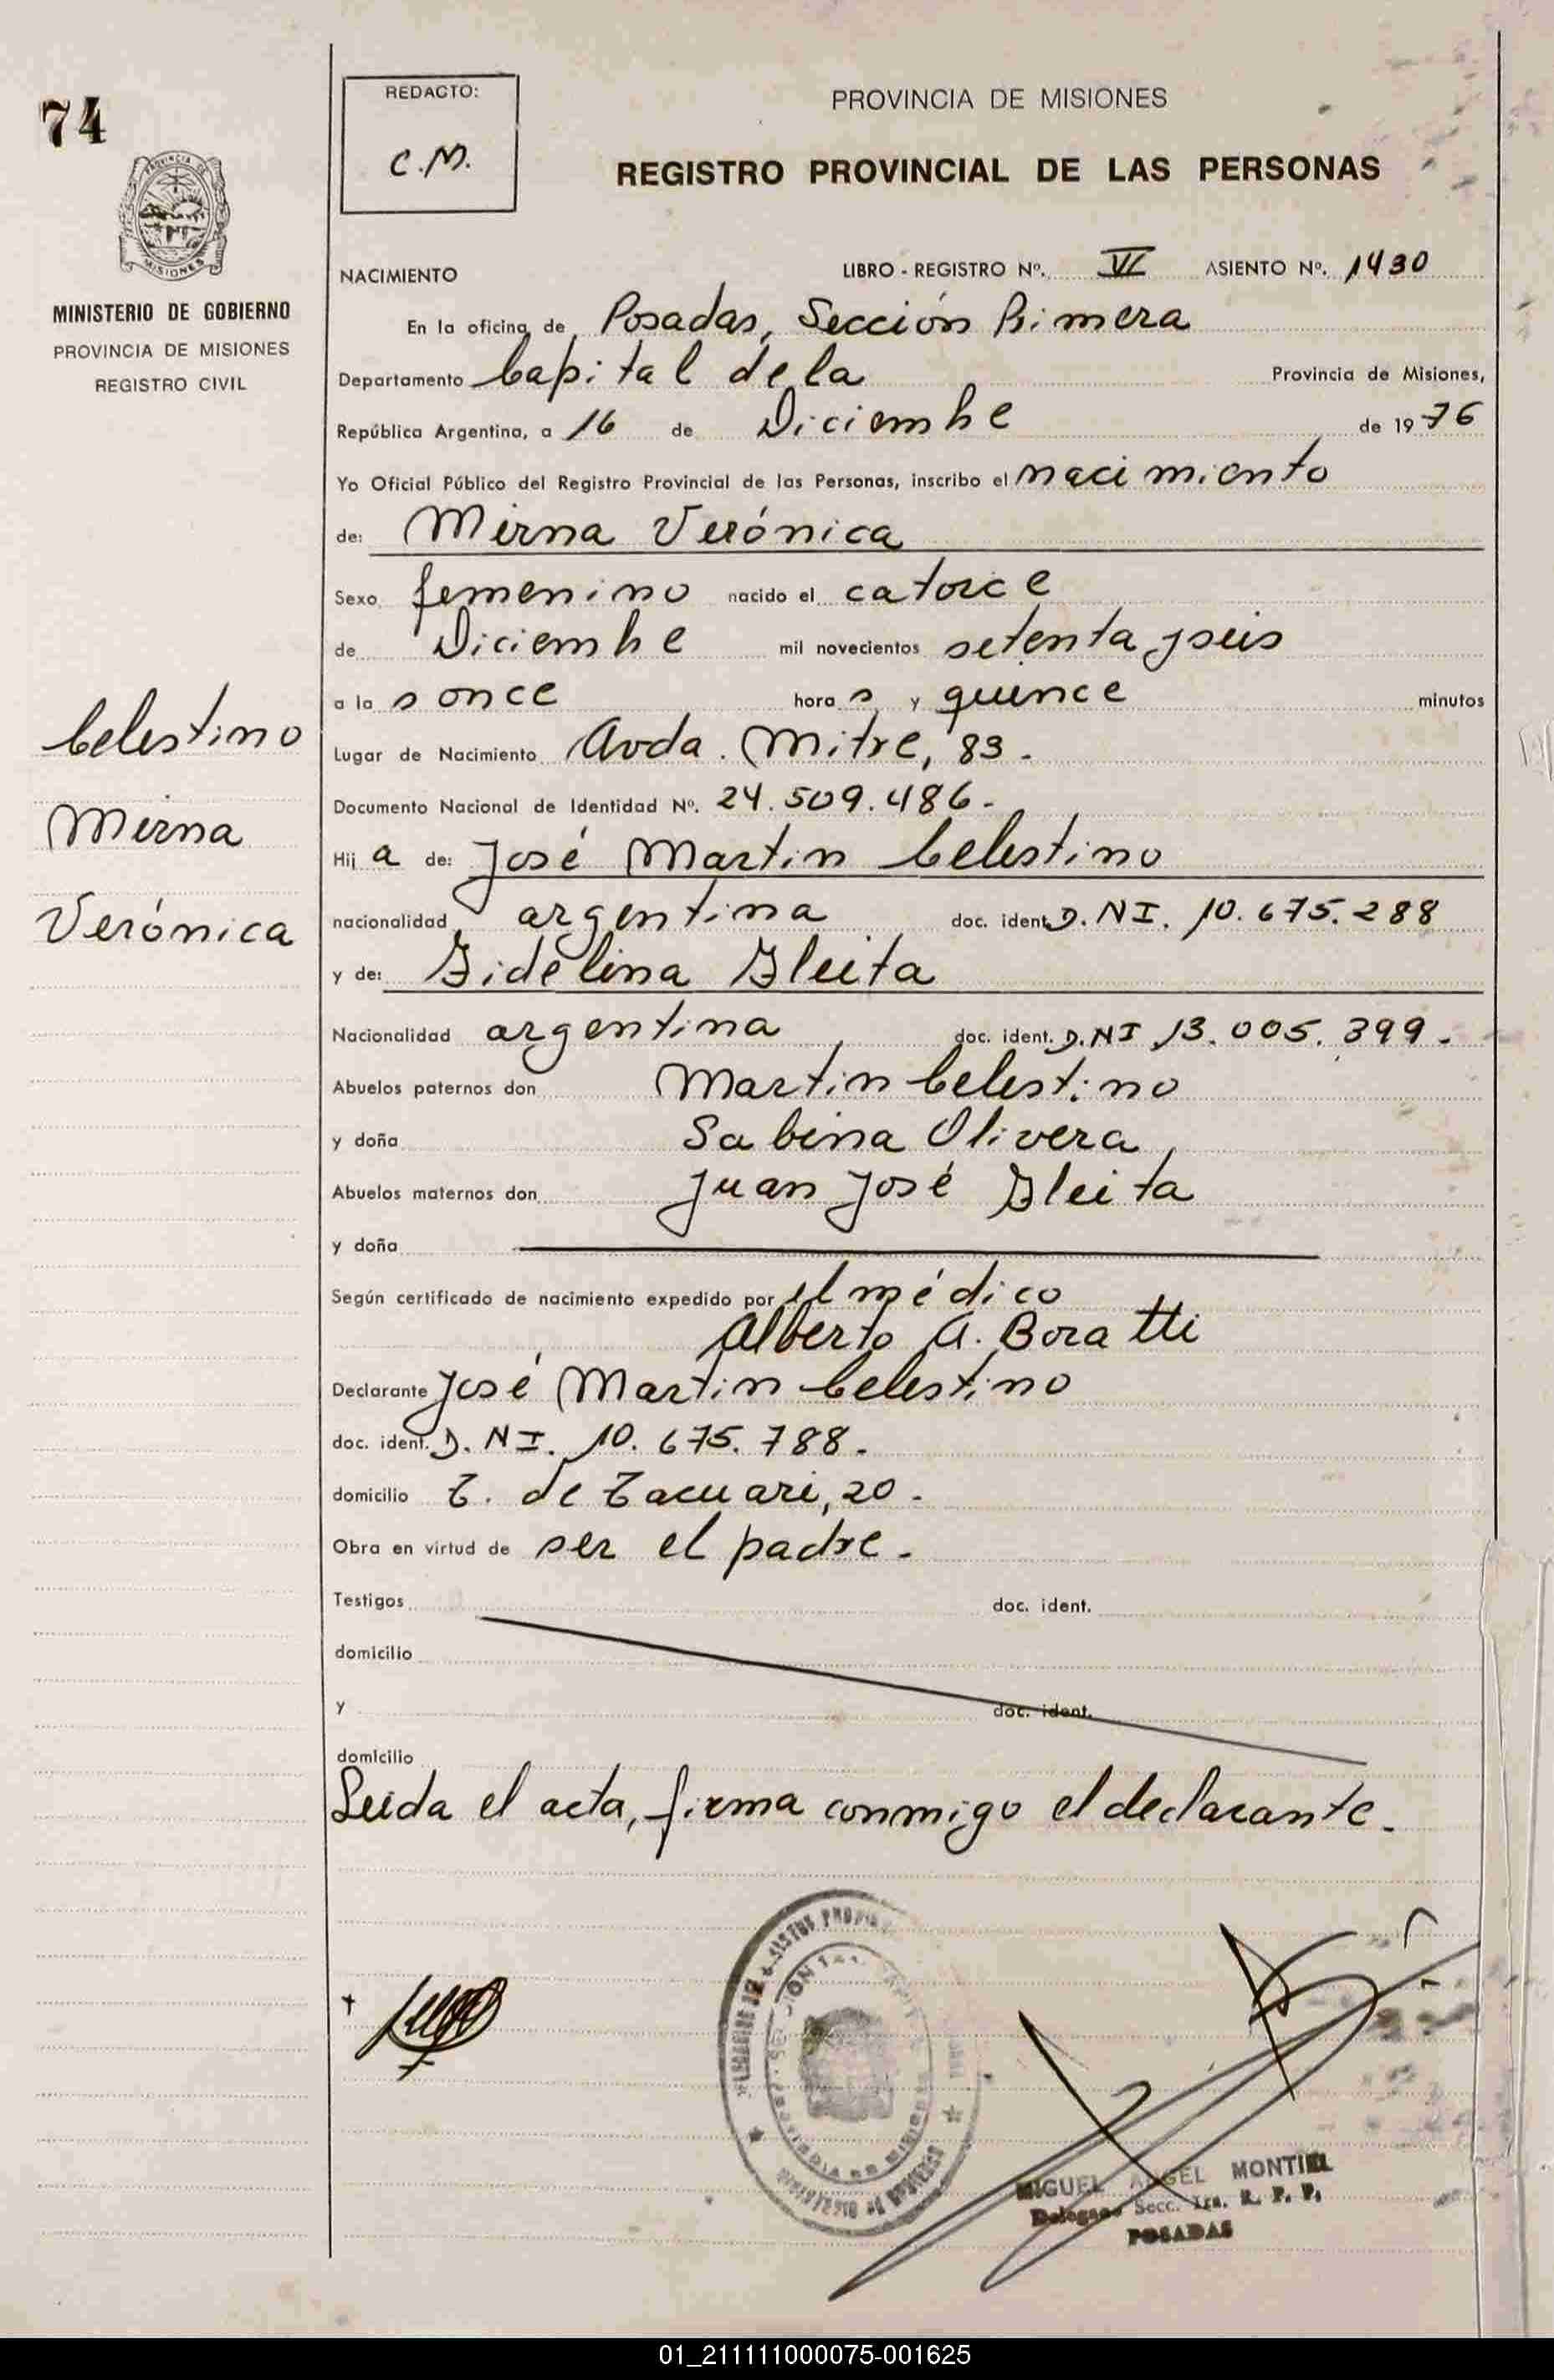 74
REDACTO:
C.M.
PROVINCIA DE MISIONES
REGISTRO PROVINCIAL DE LAS PERSONAS
MISIONES
MINISTERIO DE GOBIERNO
PROVINCIA DE MISIONES
REGISTRO CIVIL
NACIMIENTO
LIBRO - REGISTRO Nº. VI ASIENTO Nº. 1430
En la oficina de Posadas, Sección Primera
Departamento Capital de la Provincia de Misiones,
República Argentina, a 16 de Diciembre de 1976
Yo Oficial Público del Registro Provincial de las Personas, inscribo el nacimiento
de: Mirna Verónica
Sexo femenino nacido el catorce
de Diciembre mil novecientos setenta y seis
a las once horas y quince minutos
Lugar de Nacimiento Avda. Mitre, 83.
Documento Nacional de Identidad Nº. 24.509.486.
Hija de: José Martin Celestino
nacionalidad argentina doc. ident. D.NI. 10.675.288
y de: Fidelina Fleita
Nacionalidad argentina doc. ident. D.NI 13.005.399.
Abuelos paternos don Martin Celestino
y doña Sabina Olivera
Abuelos maternos don Juan José Fleita
y doña
Según certificado de nacimiento expedido por el médico
Alberto A. Boratti
Declarante José Martin Celestino
doc. ident. D.NI. 10.675.788.
domicilio T. de Tacuari, 20.
Obra en virtud de ser el padre.
Testigos doc. ident.
domicilio
y doc. ident.
domicilio
Leida el acta, firma conmigo el declarante.
Celestino
Mirna
Verónica
MIGUEL ANGEL MONTIEL
Delegado Secc. 1ra. R. P. P.
POSADAS
01_211111000075-001625